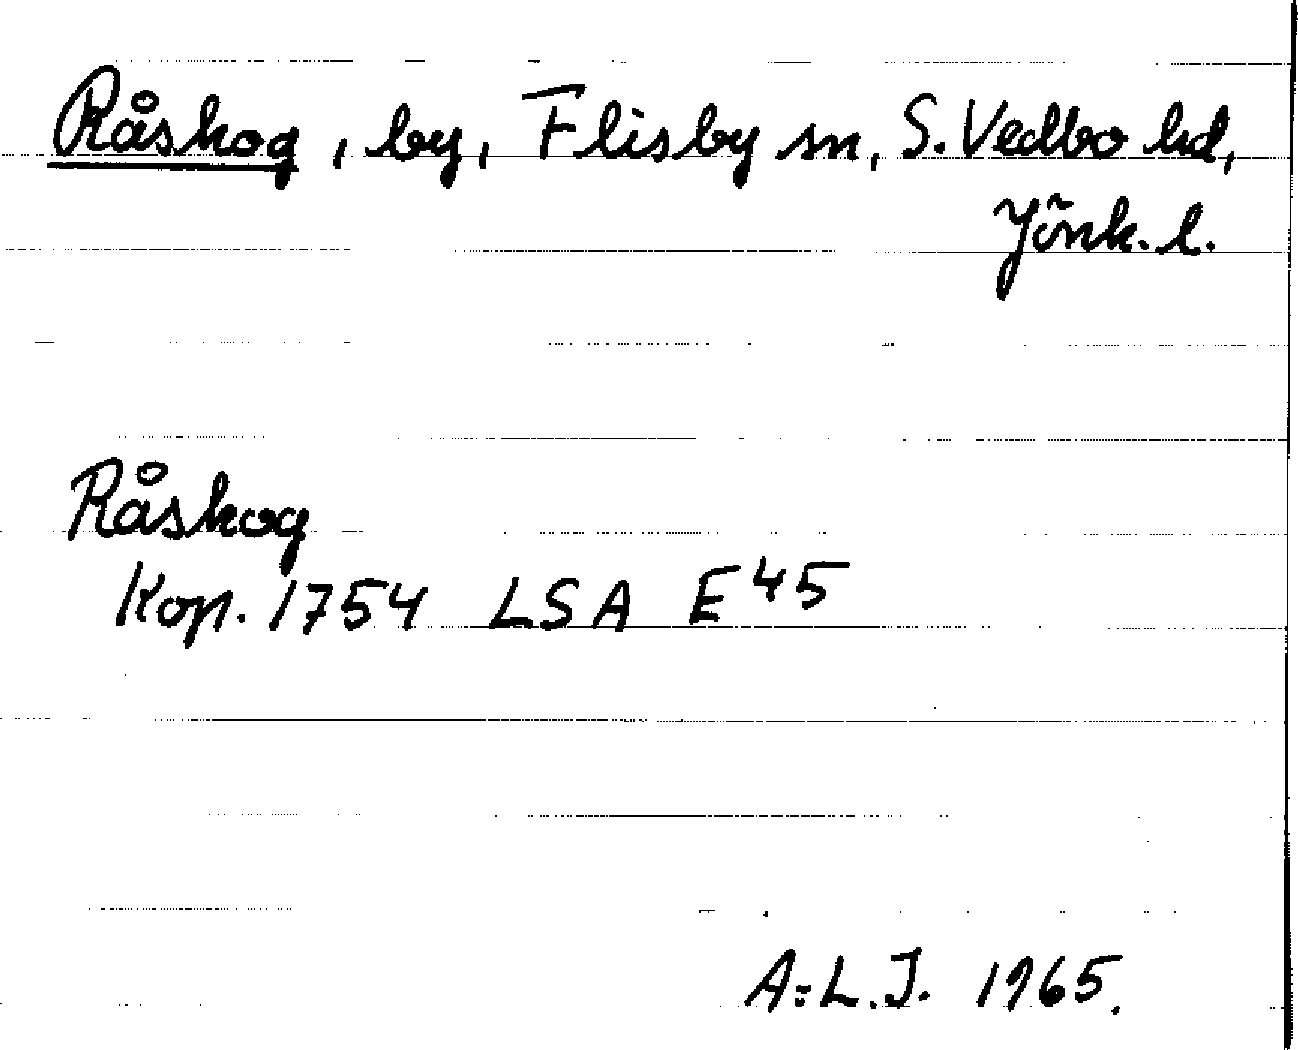 Råskog, by, Flisby sn, S. Vedbo hd,
Jönk. l.
Råskog
Kop. 1754 LSA E 45
A:L.J. 1965.